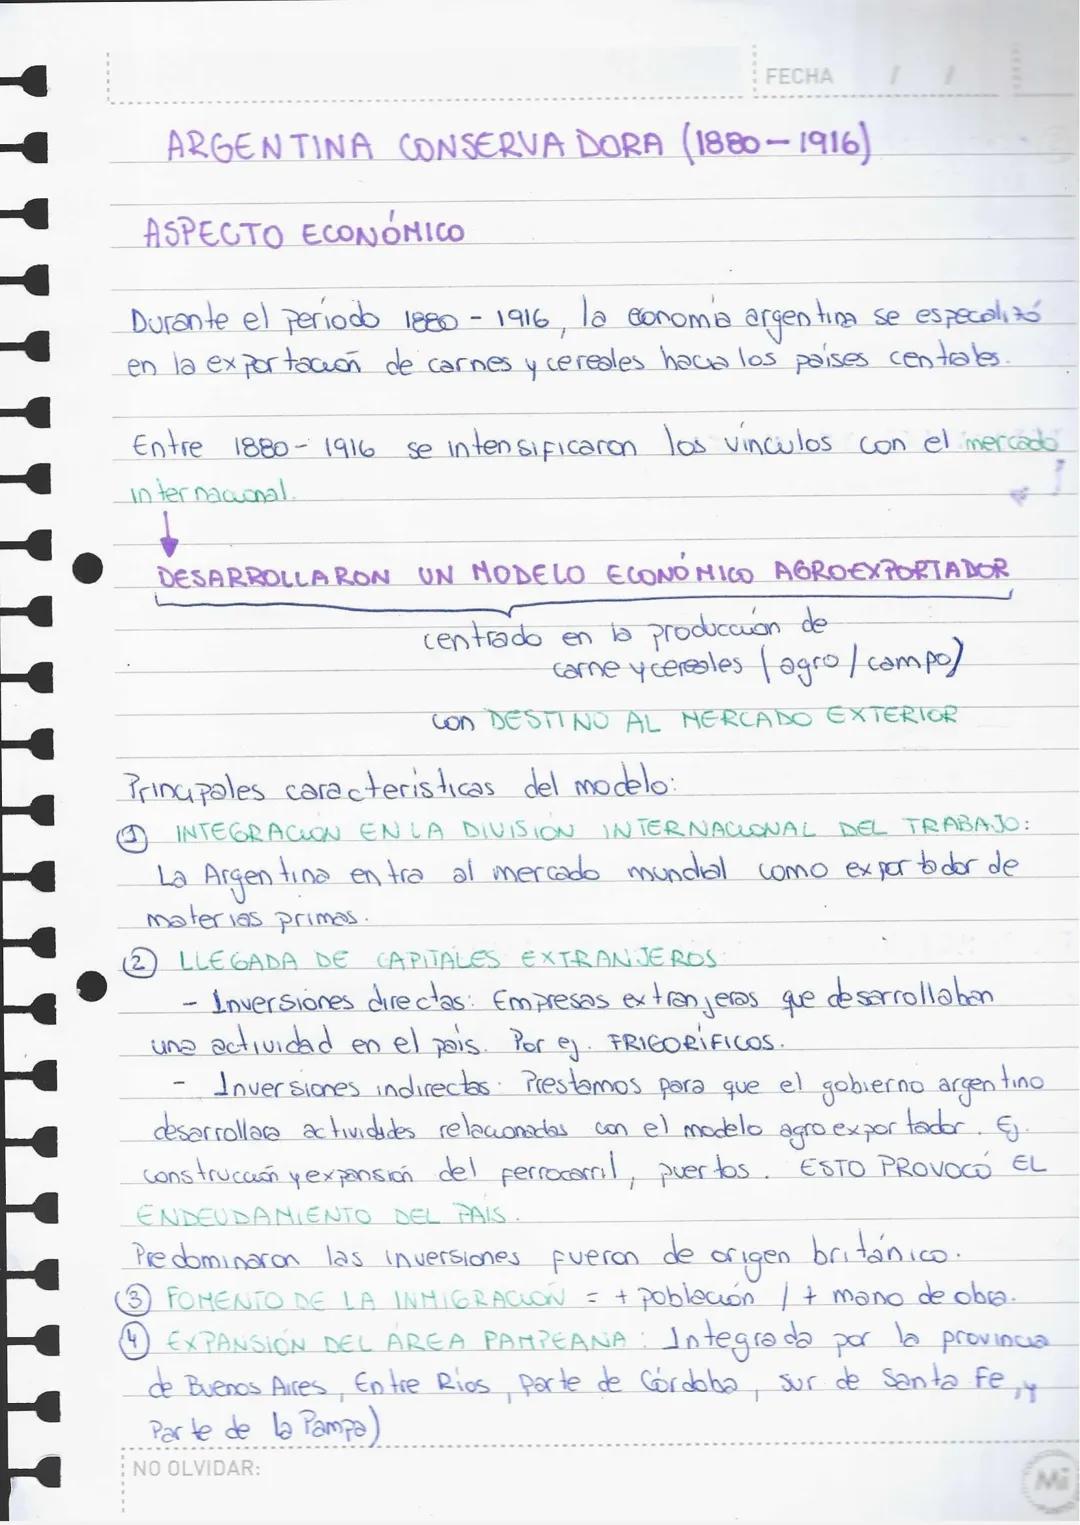 FECHA / /
ARGENTINA CONSERVADORA (1880-1916)
ASPECTO ECONÓMICO
Durante el período 1880 - 1916, la economía argentina se especalizó
en la exportación de carnes y cereales hacia los países centrales.
Entre 1880 - 1916 se intensificaron los vínculos con el mercado
internacional.
DESARROLLARON UN MODELO ECONÓMICO AGROEXPORTADOR
centrado en la producción de
carne y cereales (agro / campo)
con DESTINO AL MERCADO EXTERIOR
Principales características del modelo:
① INTEGRACIÓN EN LA DIVISIÓN INTERNACIONAL DEL TRABAJO:
La Argentina entra al mercado mundial como exportador de
materias primas.
② LLEGADA DE CAPITALES EXTRANJEROS:
- Inversiones directas: Empresas extranjeras que desarrollaban
una actividad en el país. Por ej. FRIGORÍFICOS.
- Inversiones indirectas: Prestamos para que el gobierno argentino
desarrollara actividades relacionadas con el modelo agroexportador. Ej.
construcción y expansión del ferrocarril, puertos. ESTO PROVOCÓ EL
ENDEUDAMIENTO DEL PAÍS.
Predominaron las inversiones fueron de origen británico.
③ FOMENTO DE LA INMIGRACIÓN = + población / + mano de obra.
④ EXPANSIÓN DEL ÁREA PAMPEANA: Integrada por la provincia
de Buenos Aires, Entre Ríos, parte de Córdoba, sur de Santa Fe, y
Parte de la Pampa)
NO OLVIDAR:
Mi